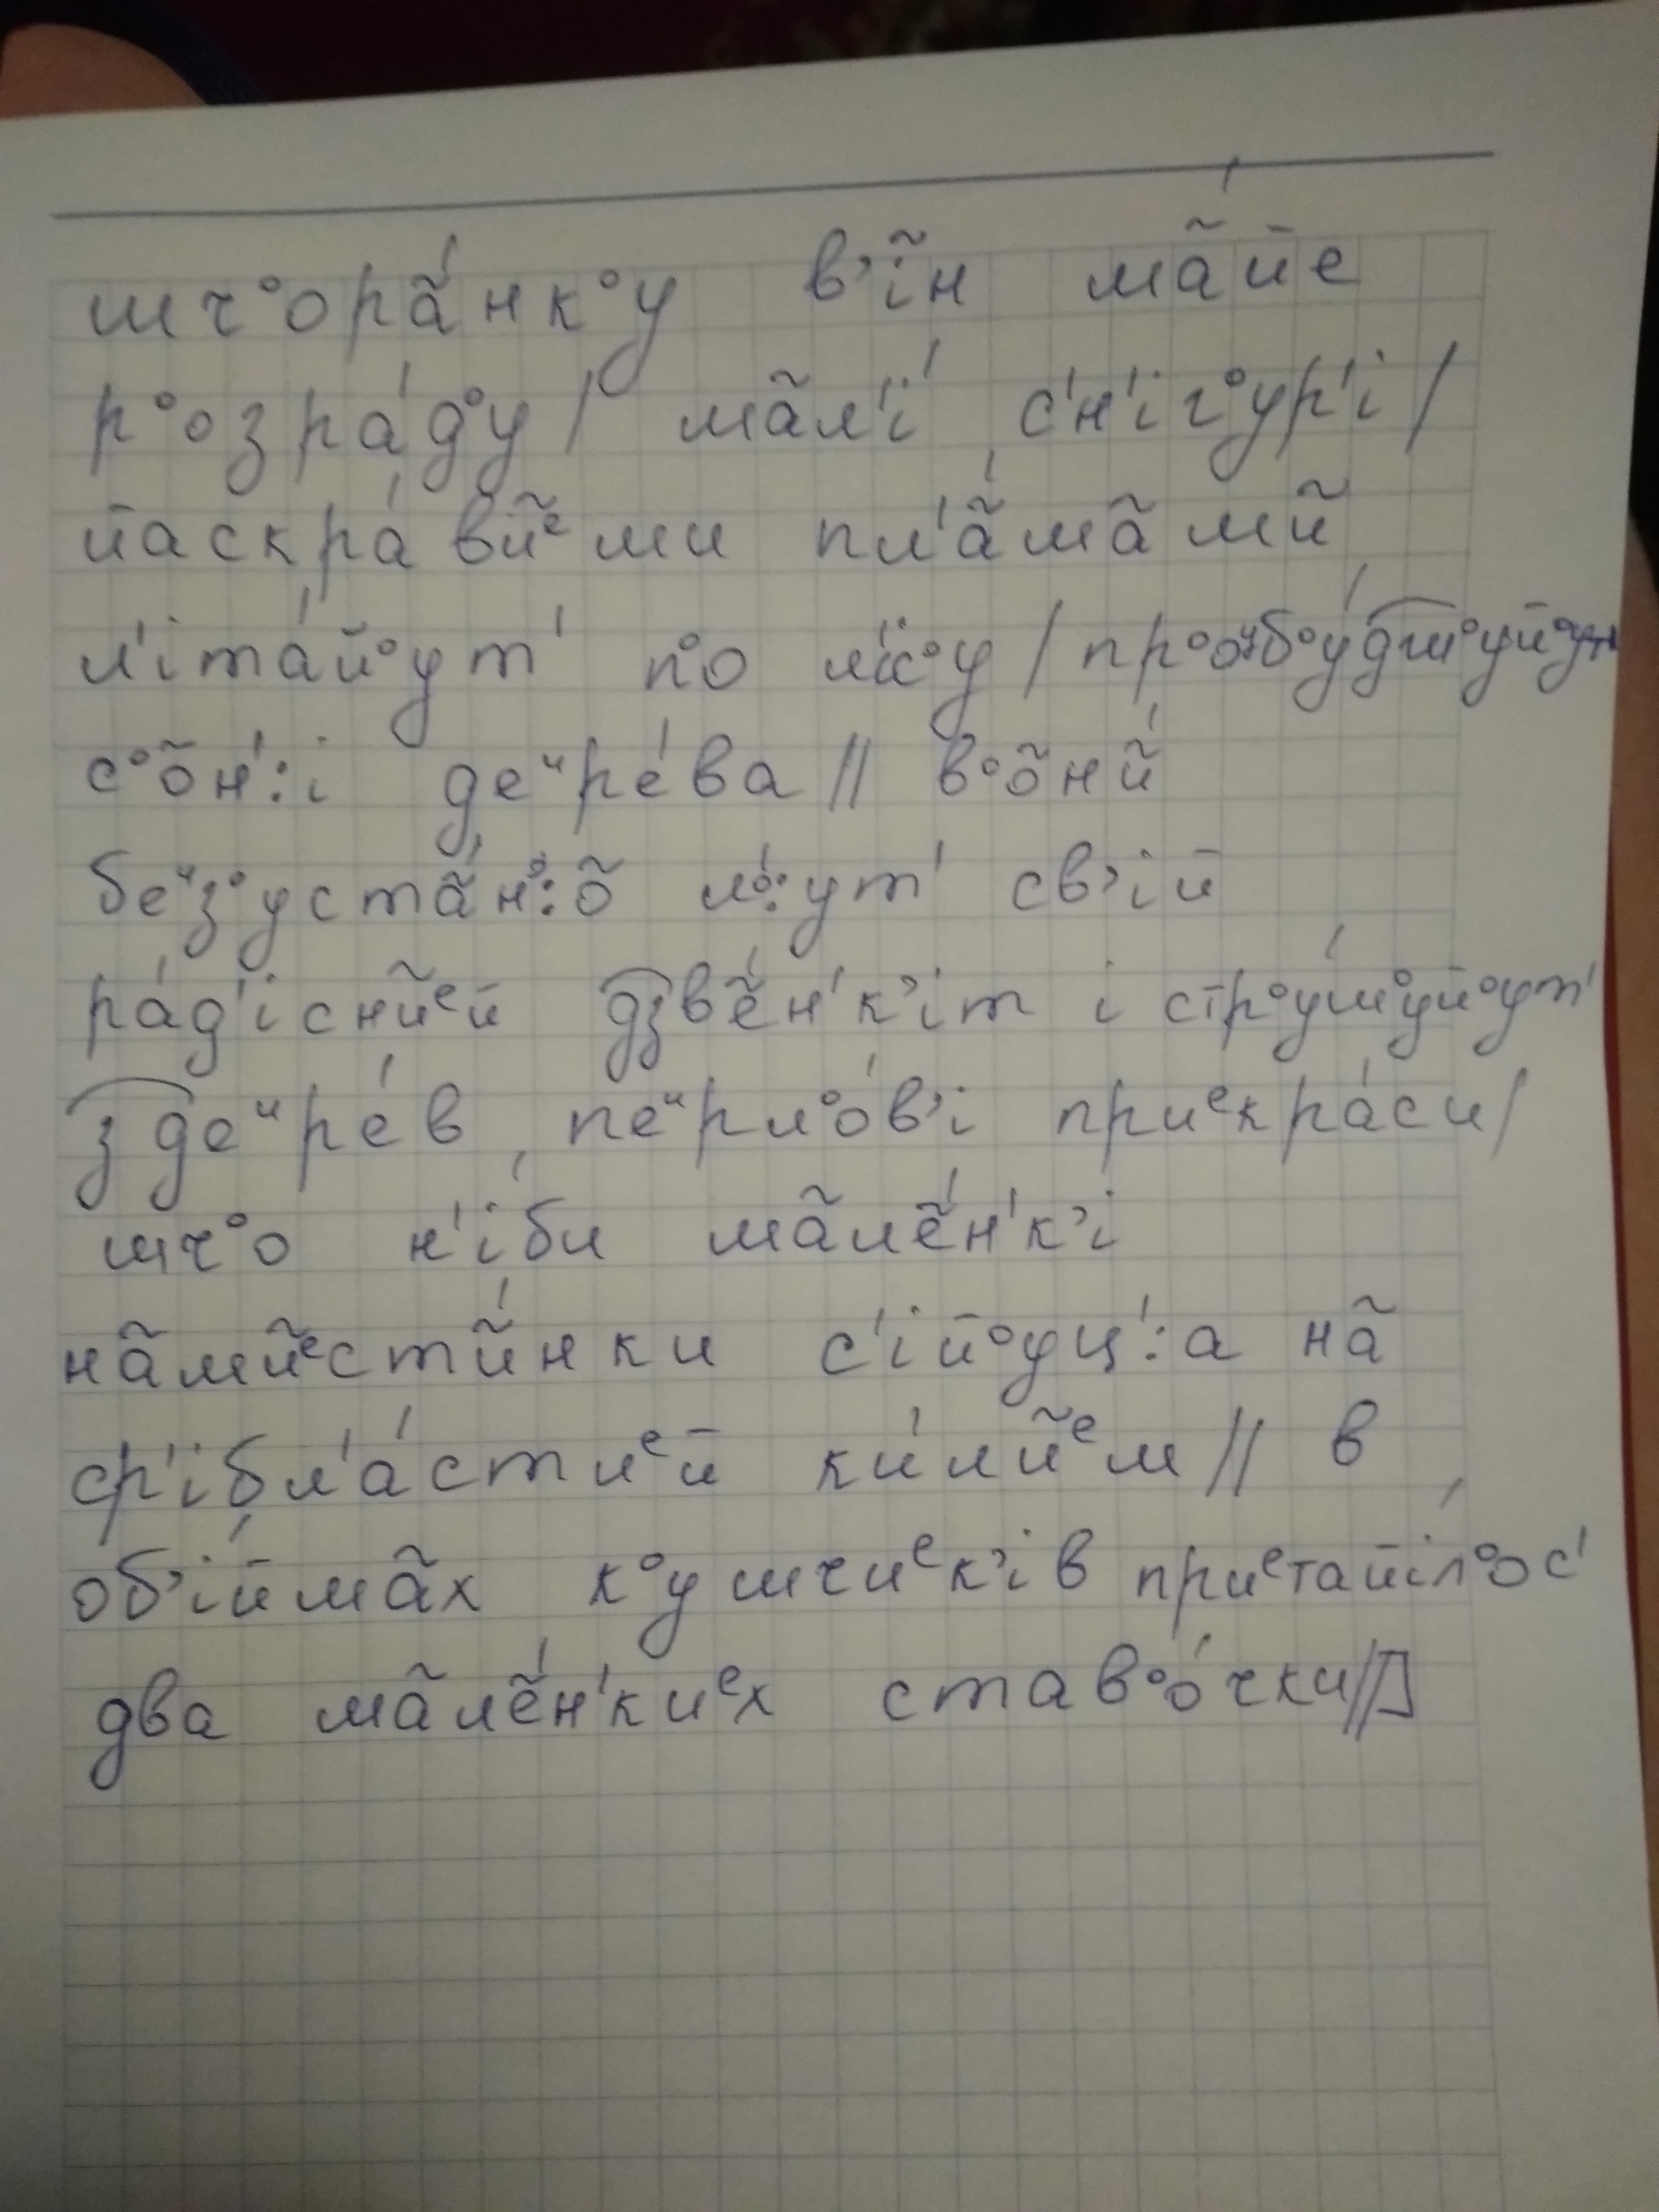 шч°ора̃́нк°у в’ı̃н ма̃́йе
р°озра́д°у/ ма̃л'і́ с'н'іг°ур'і́/
йаскра́ви̃ᵉми пл'а̃́ма̃ми̃
л'іта́й°ут' п°о л'і́с°у/
с°о̃́н':і деᴻре́ва// в°о̃ни̃́
беᴻз°уста̃́н°:о̃ л'°:ут' св’ій
ра́д'існи̃ᵉй д͡зве̃́н'к’іт і стр°у́ш°уй°ут'
з͡деᴻре́в пеᴻрл°о́в’і приᵉкра́си/
шч°о н'і́би ма̃ле̃́н'к’і
на̃ми̃ᵉсти̃́нки с'і́й°уц':а на̃
ср'ібл'а́стиᵉй ки́ли̃ᵉм// в
об’і́йма̃х к°ушчиᵉк’ів приᵉтайі́л°ос'
два ма̃ле̃́н'киᵉх став°о́чки//]